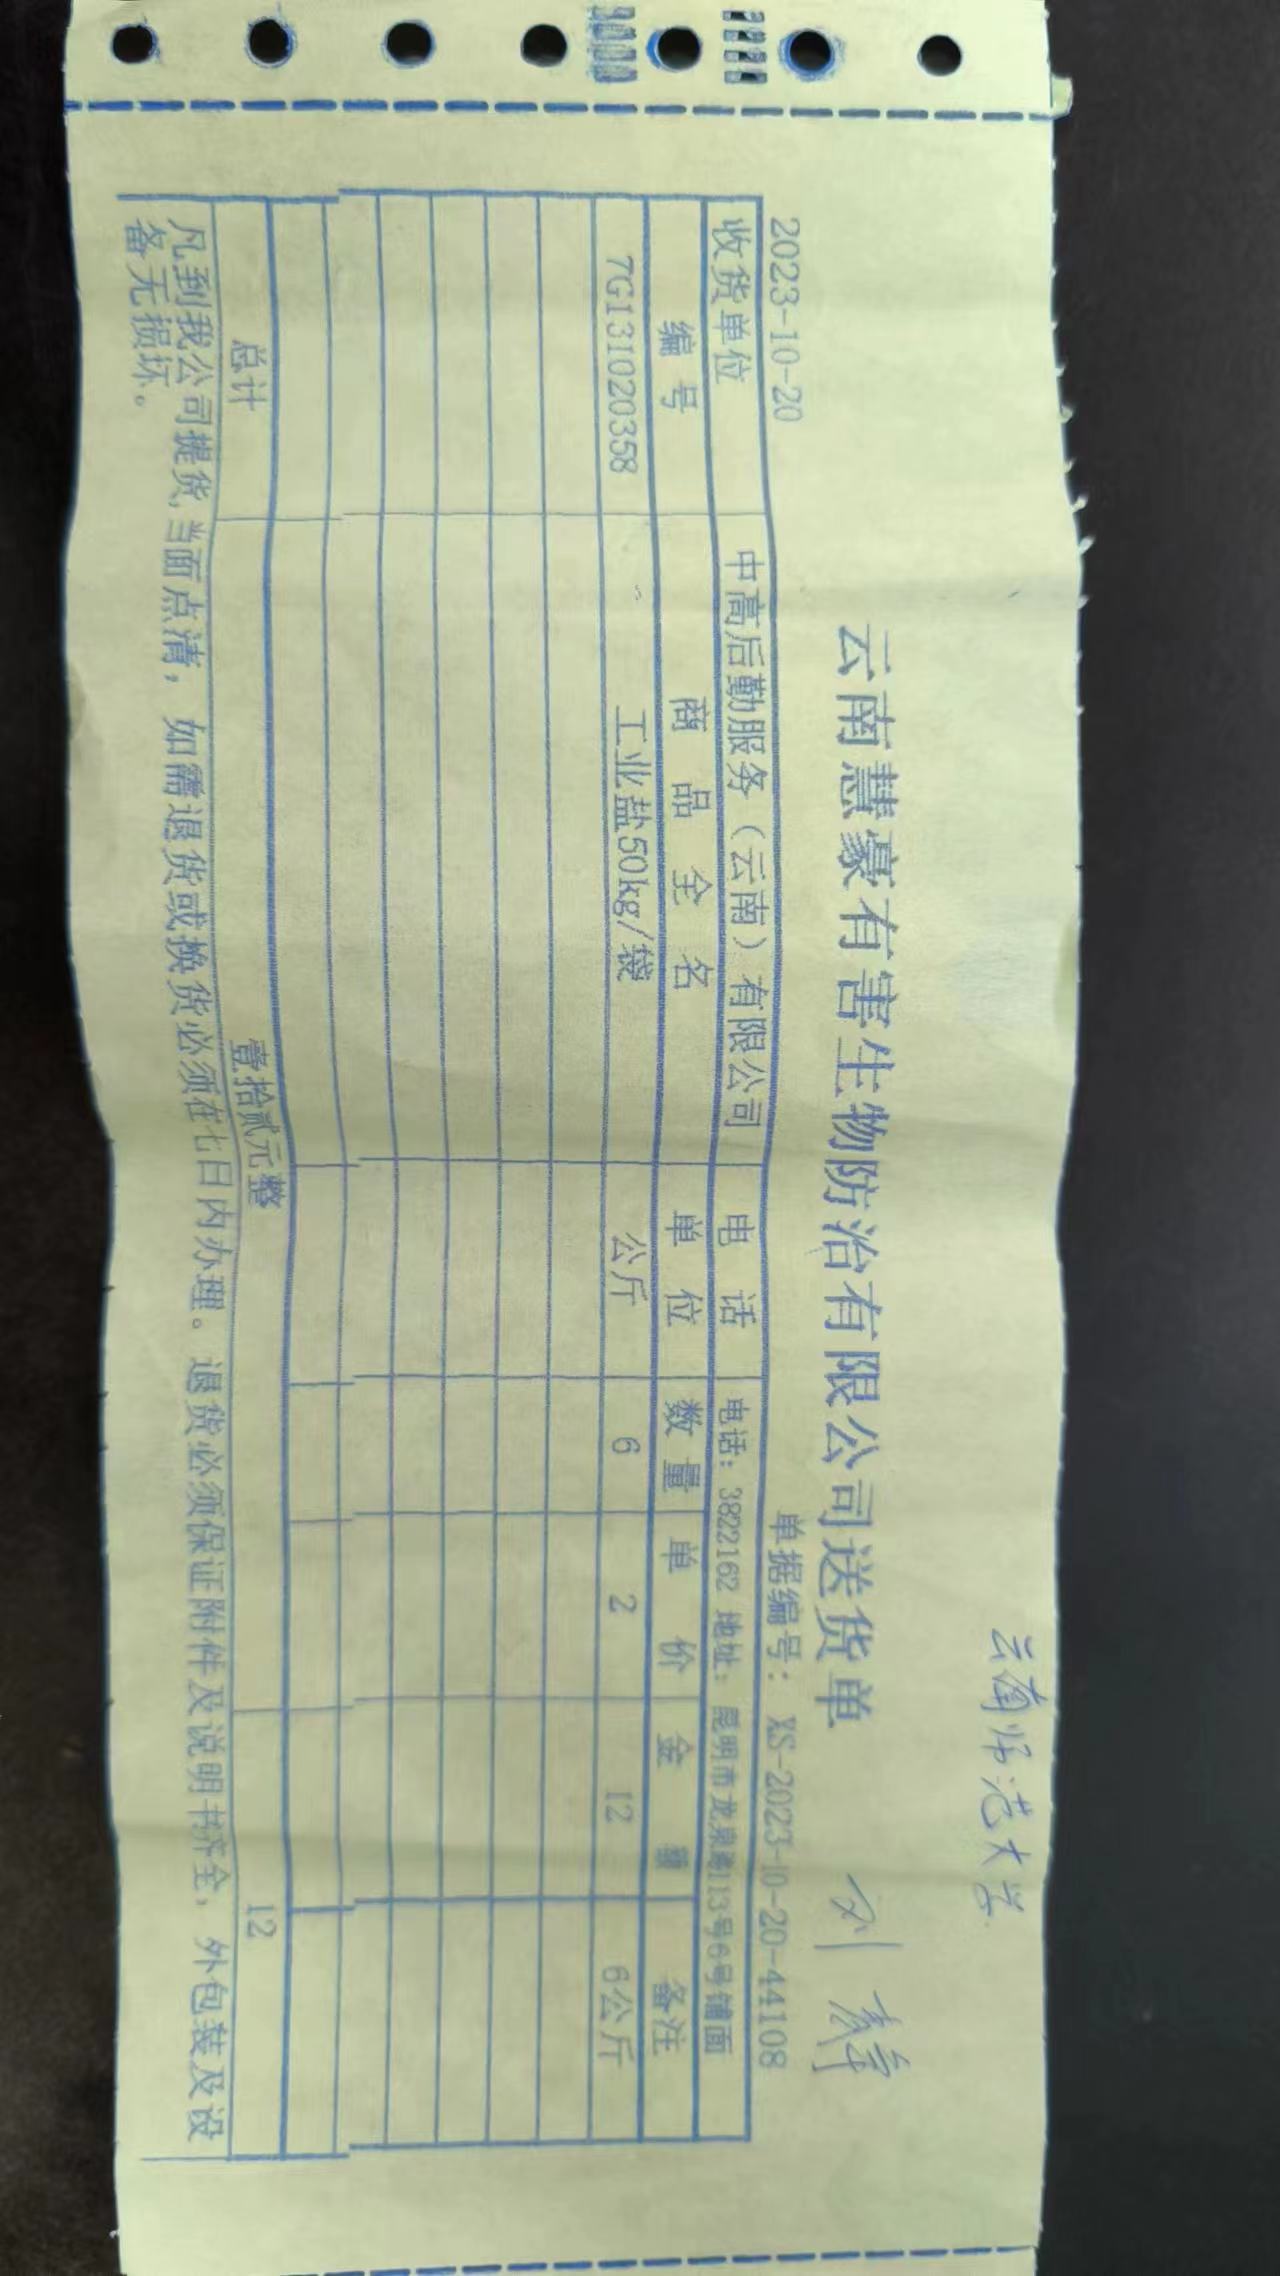 云南师范大学
云南慧豪有害生物防治有限公司送货单
2023-10-20 单据编号: XS-2023-10-20-44108
收货单位 中高后勤服务（云南）有限公司 电话 电话: 3822162 地址: 昆明市龙泉路113号6号铺面
编号 商品全名 单位 数量 单价 金额 备注
7G131020358 工业盐50kg/袋 公斤 6 2 12 6公斤
总计 壹拾贰元整 12
凡到我公司提货,当面点清，如需退货或换货必须在七日内办理。退货必须保证附件及说明书齐全，外包装及设
备无损坏。